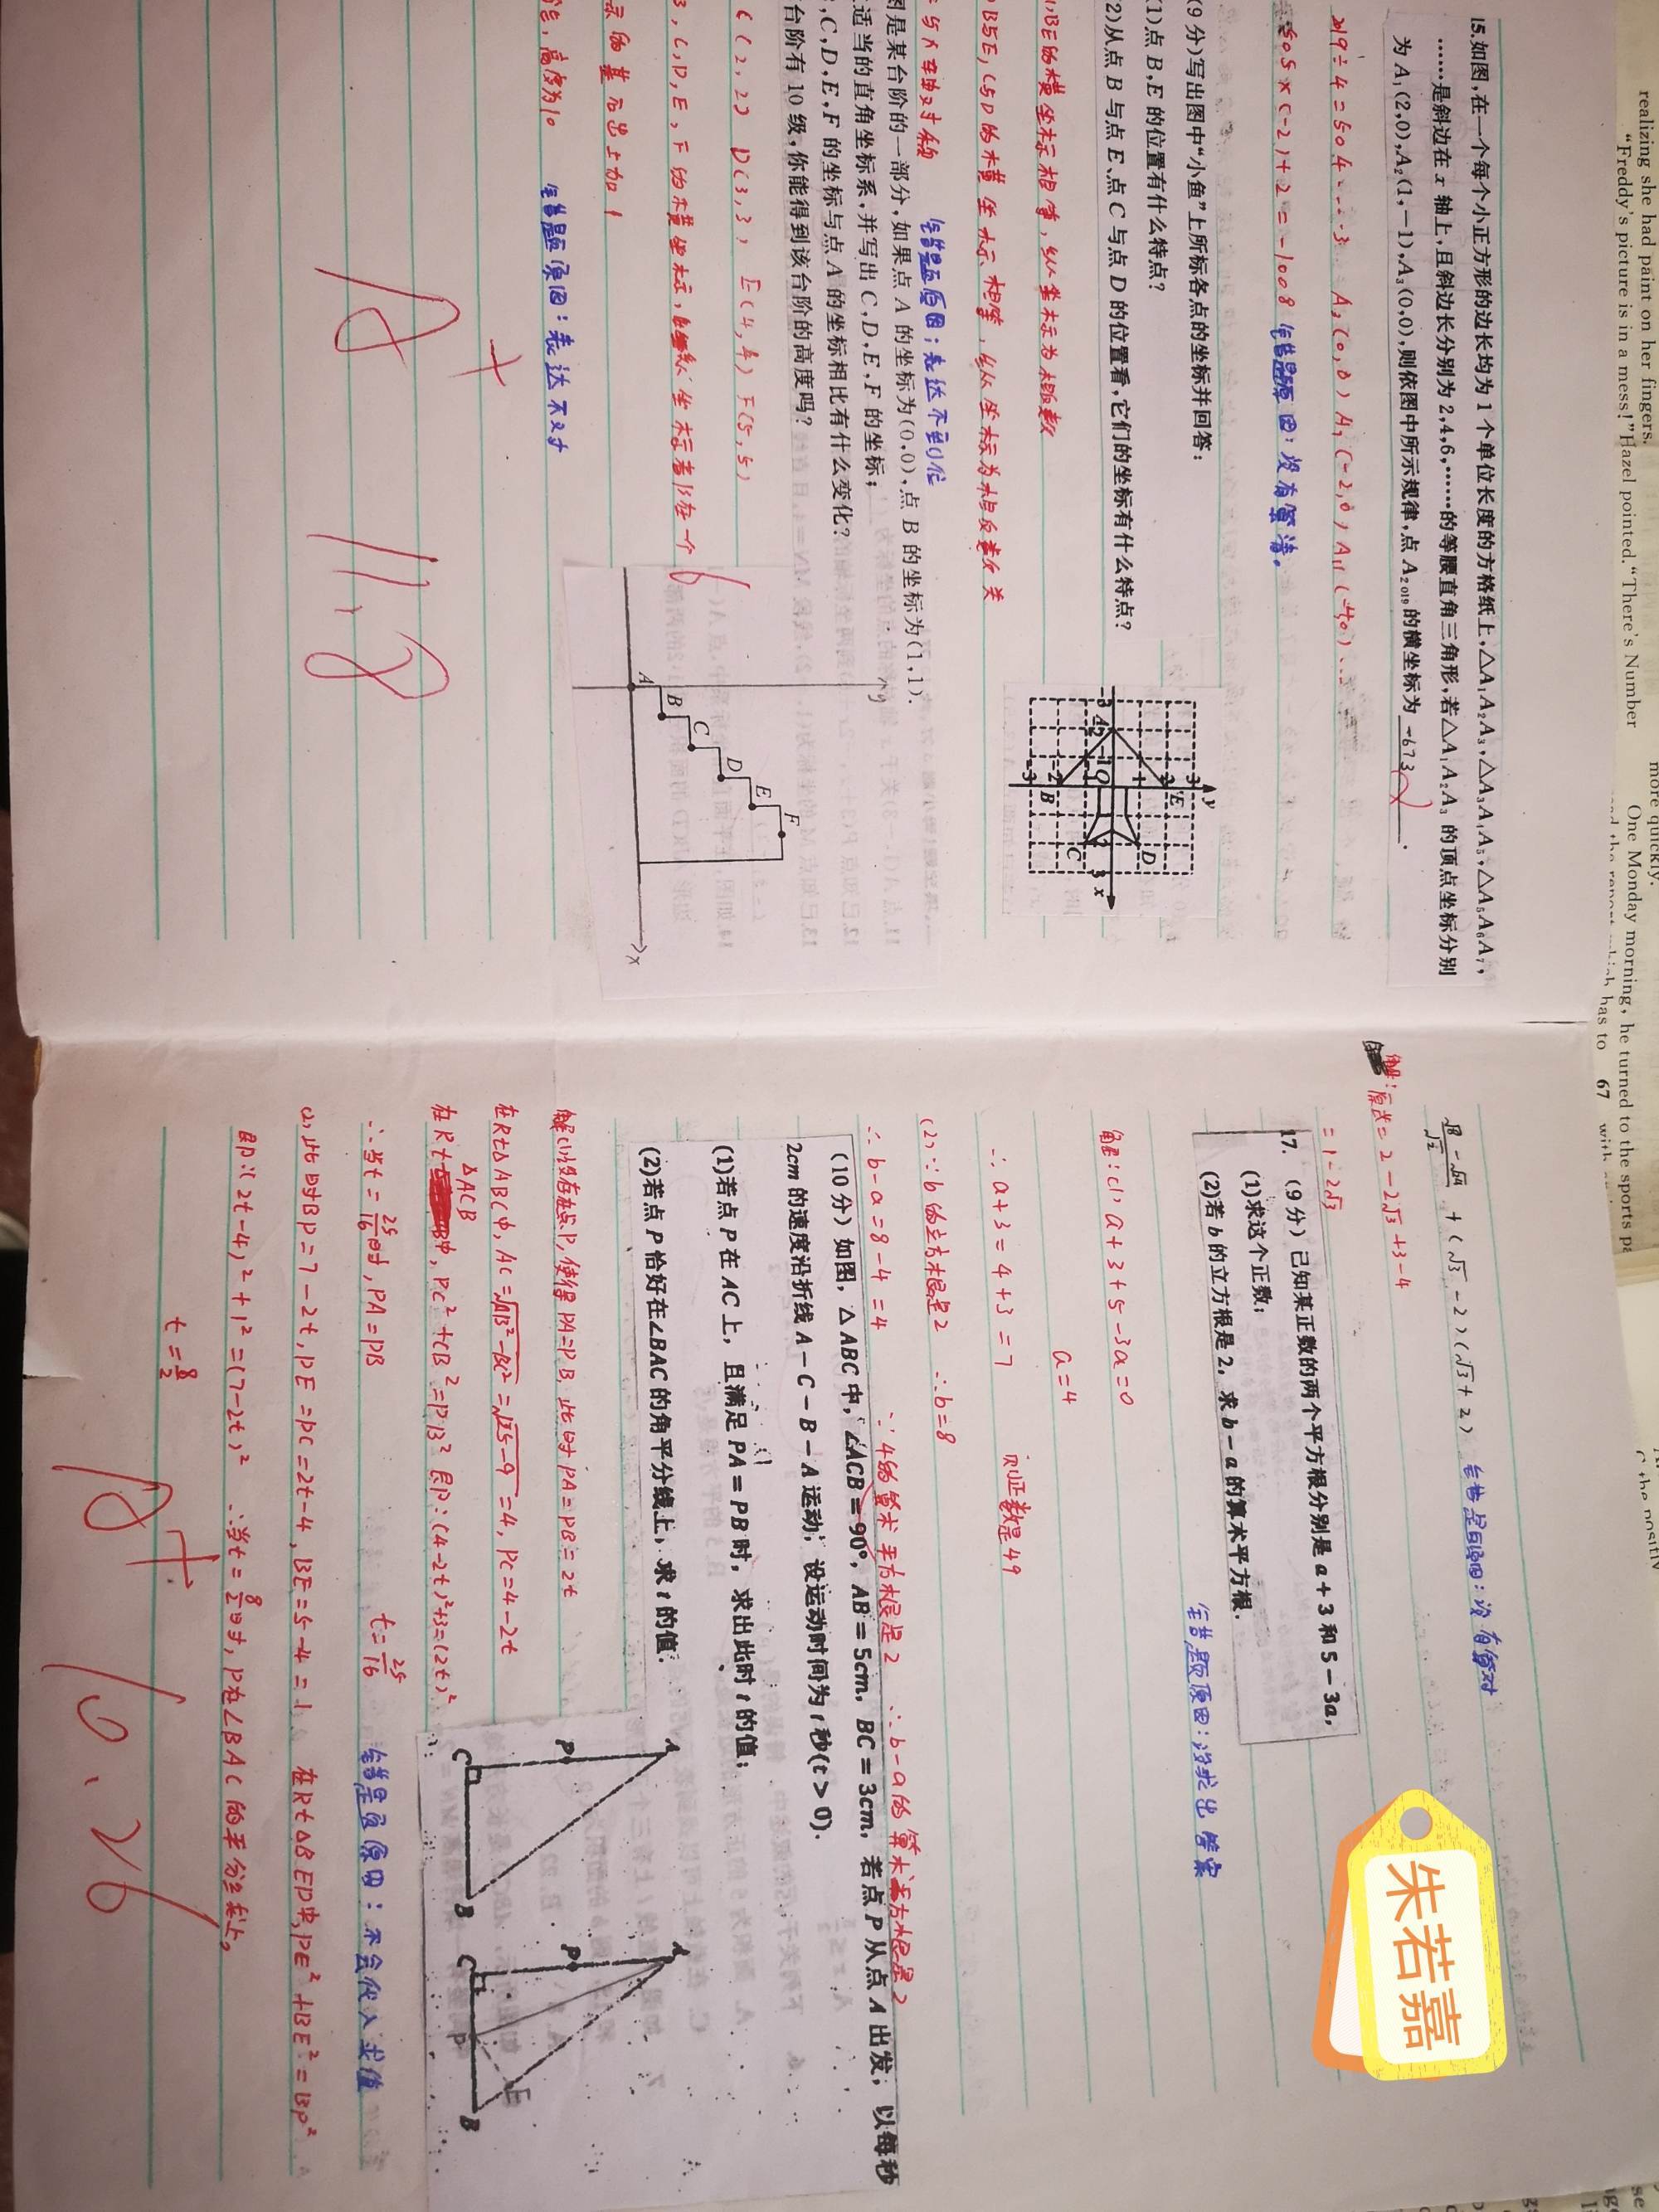 realizing she had paint on her fingers.
"Freddy's picture is in a mess!" Hazel pointed. "There's Number
more quickly.
One Monday morning, he turned to the sports
67
15.如图,在一个每个小正方形的边长均为1个单位长度的方格纸上,△A₁A₂A₃,△A₃A₄A₅,△A₅A₆A₇,
……是斜边在x轴上,且斜边长分别为2,4,6,……的等腰直角三角形,若△A₁A₂A₃的顶点坐标分别
为A₁(2,0),A₂(1,-1),A₃(0,0),则依图中所示规律,点A₂₀₁₉的横坐标为 -673 .
2019÷4=504……3 A₃(0,0) A₇(-2,0) A₁₁(-4,0)
505×(-2)+2=-1008 错题原因:没有算清。
(9分)写出图中“小鱼”上所标各点的坐标并回答:
(1)点B,E的位置有什么特点?
(2)从点B与点E、点C与点D的位置看,它们的坐标有什么特点?
B与E,C与D的横坐标相等,纵坐标为相反数关
与x轴对称 错题原因:表达不到位
图是某台阶的一部分,如果点A的坐标为(0,0),点B的坐标为(1,1).
适当的直角坐标系,并写出C,D,E,F的坐标;
,C,D,E,F的坐标与点A的坐标相比有什么变化?
台阶有10级,你能得到该台阶的高度吗?
C(2,2) D(3,3), E(4,4) F(5,5)
B,C,D,E,F的横坐标,纵坐标都在一个
的基础上加1
,高度为10 错题原因:表达不对
y
3
2
1
E
D
A
-3
-2
-1
O
1
2
3
x
B
C
y
A
B
C
D
E
F
x
A+
11.8
√8-√24/√2 + (√3-2)(√3+2) 错题原因:没有算对
解:原式=2-2√3+3-4
=1-2√3
17. (9分)已知某正数的两个平方根分别是a+3和5-3a,
(1)求这个正数;
(2)若b的立方根是2,求b-a的算术平方根.
错题原因:没求出答案
解:(1)a+3+5-3a=0
a=4
∴a+3=4+3=7 则正数是49
(2)∵b的立方根是2 ∴b=8
∴b-a=8-4=4 ∵4的算术平方根是2 ∴b-a的算术平方根是2
(10分)如图,△ABC中,∠ACB=90°,AB=5cm,BC=3cm,若点P从点A出发,以每秒
2cm的速度沿折线A-C-B-A运动,设运动时间为t秒(t>0).
(1)若点P在AC上,且满足PA=PB时,求出此时t的值;
(2)若点P恰好在∠BAC的角平分线上,求t的值;
解(1)设存在点P,使得PA=PB,此时PA=PB=2t
在Rt△ABC中,AC=√AB²-BC²=√25-9=4,PC=4-2t
在Rt△ACB中,PC²+CB²=PB² 即:(4-2t)²+3=(2t)²
t=25/16
∴当t=25/16时,PA=PB 错题原因:不会代入求值
(2)此时BP=7-2t,PE=PC=2t-4,BE=5-4=1 在Rt△BEP中,PE²+BE²=BP²
即:(2t-4)²+1²=(7-2t)² ∴当t=8/2时,P在∠BAC的平分线上。
t=8/2
A
P
C
B
A
P
C
P
E
B
A+
10.26
朱若嘉